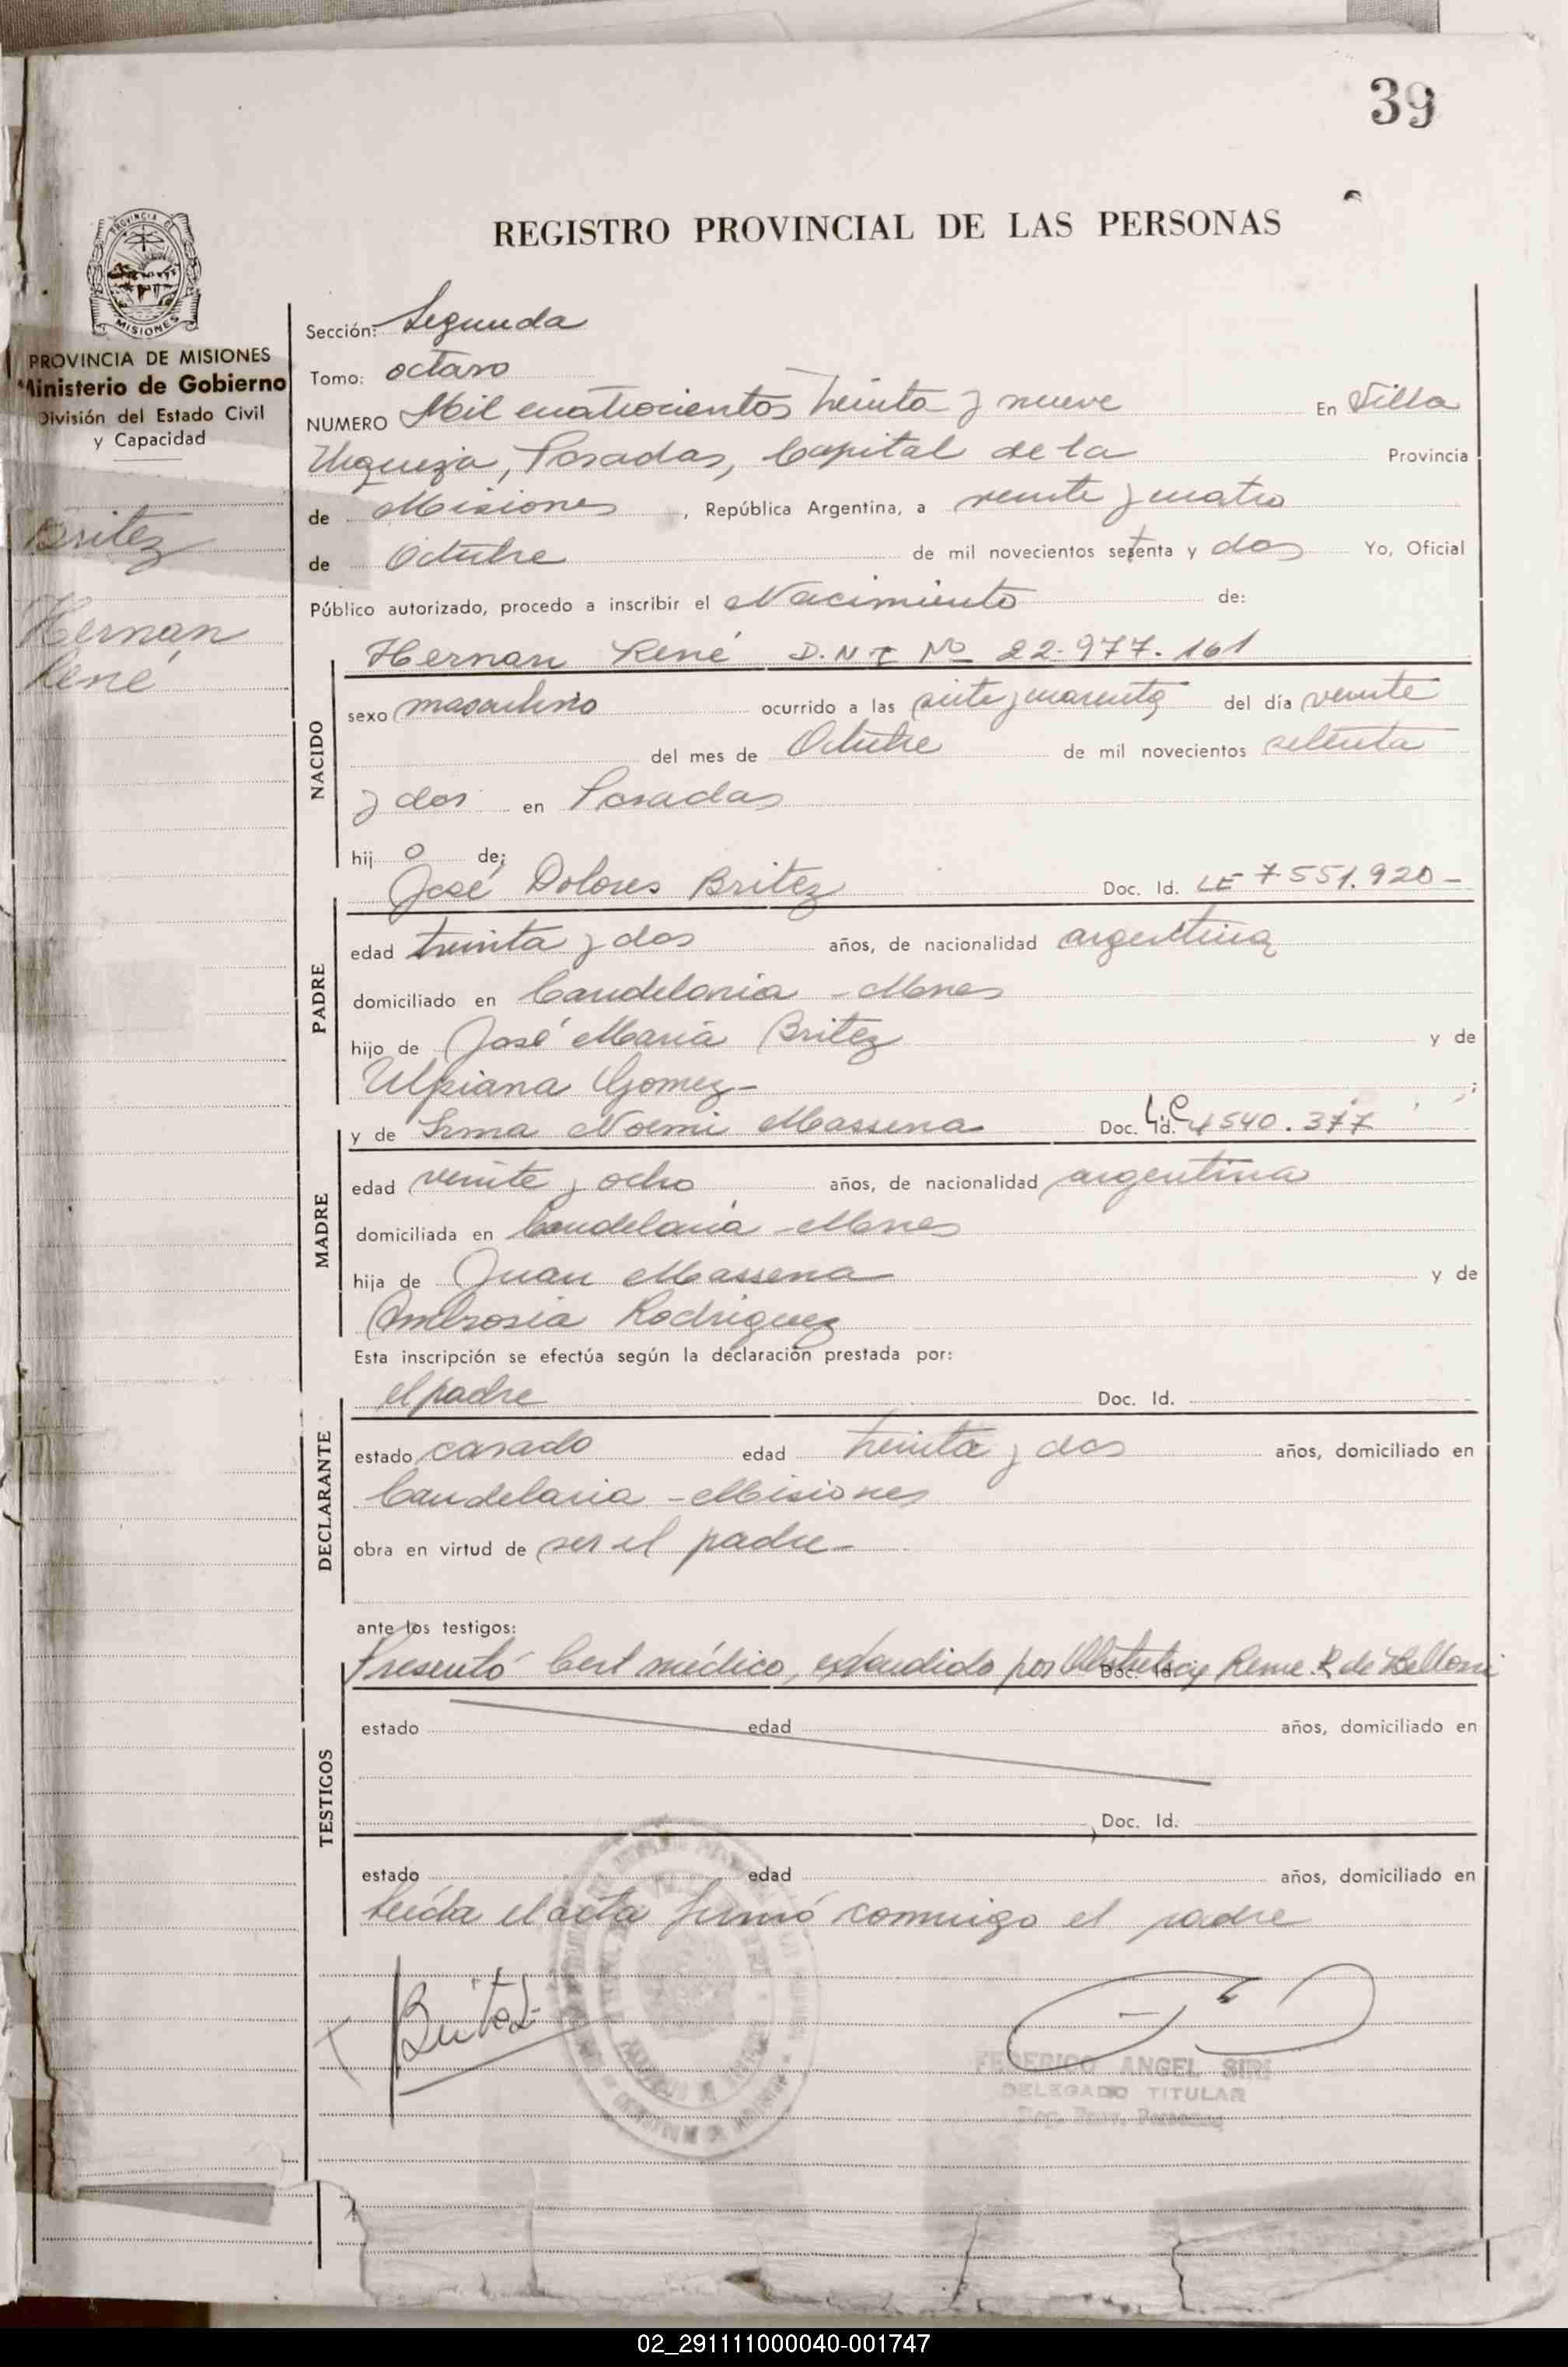 39
REGISTRO PROVINCIAL DE LAS PERSONAS
PROVINCIA DE
MISIONES
PROVINCIA DE MISIONES
Ministerio de Gobierno
División del Estado Civil
y Capacidad
Britez
Hernán
René
Sección: Segunda
Tomo: octavo
NUMERO Mil cuatrocientos treinta y nueve En Villa
Urquiza, Posadas, Capital de la Provincia
de Misiones, República Argentina, a veinte y cuatro
de Octubre de mil novecientos setenta y dos Yo, Oficial
Público autorizado, procedo a inscribir el Nacimiento de:
NACIDO
Hernan René D.N.I Nº 22.977.161
sexo masculino ocurrido a las siete y cuarenta del día veinte
del mes de Octubre de mil novecientos setenta
y dos en Posadas
hij o de;
PADRE
José Dolores Britez Doc. Id. LE 7551.920-
edad treinta y dos años, de nacionalidad argentina
domiciliado en Candelaria - Mnes
hijo de José María Britez y de
Ulpiana Gomez- ;
MADRE
y de Irma Noemi Massena Doc. Id. LC 4540.377
edad veinte y ocho años, de nacionalidad argentina
domiciliada en Candelaria - Mnes
hija de Juan Massena y de
Ambrosia Rodriguez
Esta inscripción se efectúa según la declaración prestada por:
DECLARANTE
el padre Doc. Id.
estado casado edad treinta y dos años, domiciliado en
Candelaria - Misiones
obra en virtud de ser el padre-
ante los testigos:
TESTIGOS
Presentó Cert médico, extendido por Obstetricia Reme R de Belloni Doc. Id.
estado edad años, domiciliado en
Doc. Id.
estado edad años, domiciliado en
Leída el acta firmó conmigo el padre
FEDERICO ANGEL SIRI
DELEGADO TITULAR
02_291111000040-001747